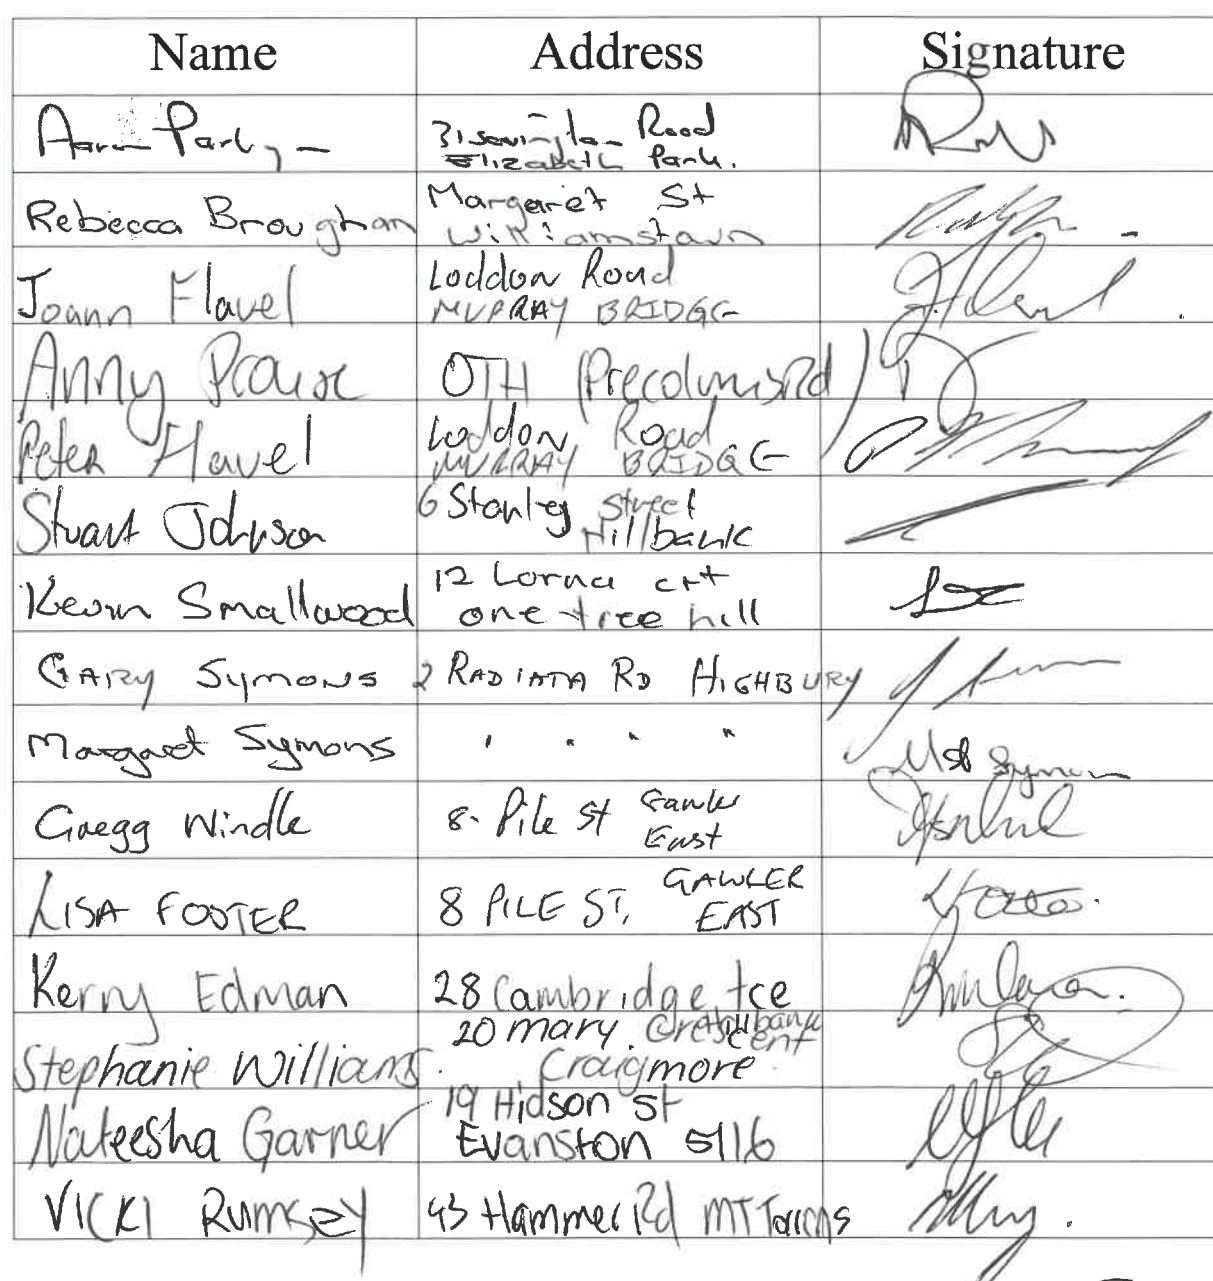 Name Address Signature
31 Road
Elizabeth Park.
Rebecca Broughan Margaret St
Williamstown
Joann Flavel Loddon Road
MURRAY BRIDGE
Anny OTH
Peter Flavel Loddon Road
MURRAY BRIDGE
Stuart Johnson 6 Stanley Street
Hillbank
Kevin Smallwood 12 Lorna crt
one tree hill
GARY SYMONS 2 RADIATA RD HIGHBURY
Margaret Symons " " " "
Gregg Windle 8 Pile St Gawler
East
LISA FOSTER 8 PILE ST, GAWLER
EAST
Kerry Edman 28 Cambridge tce
Hillbank
Stephanie Williams. 20 mary Crescent
Craigmore
Nateesha Garner 19 Hidson St
Evanston 5116
VICKI RUMSEY 43 Hammer Rd MT Torrens